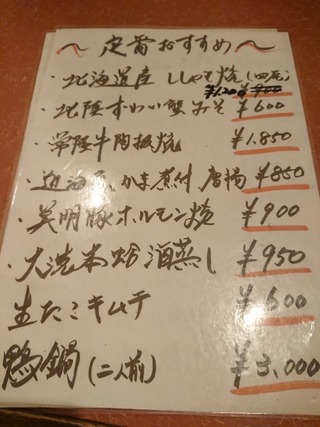 〜 定番おすすめ 〜
・北海道産 ししゃも焼(四尾) ¥1200
・北陸ずわい蟹みそ ¥600
・常陸牛陶板焼 ¥1.850
・かま煮付 唐揚 ¥850
・美明豚ホルモン焼 ¥900
・大洗本蛤酒蒸し ¥950
生たこキムチ ¥600
鴨鍋(二人前) ¥3.000